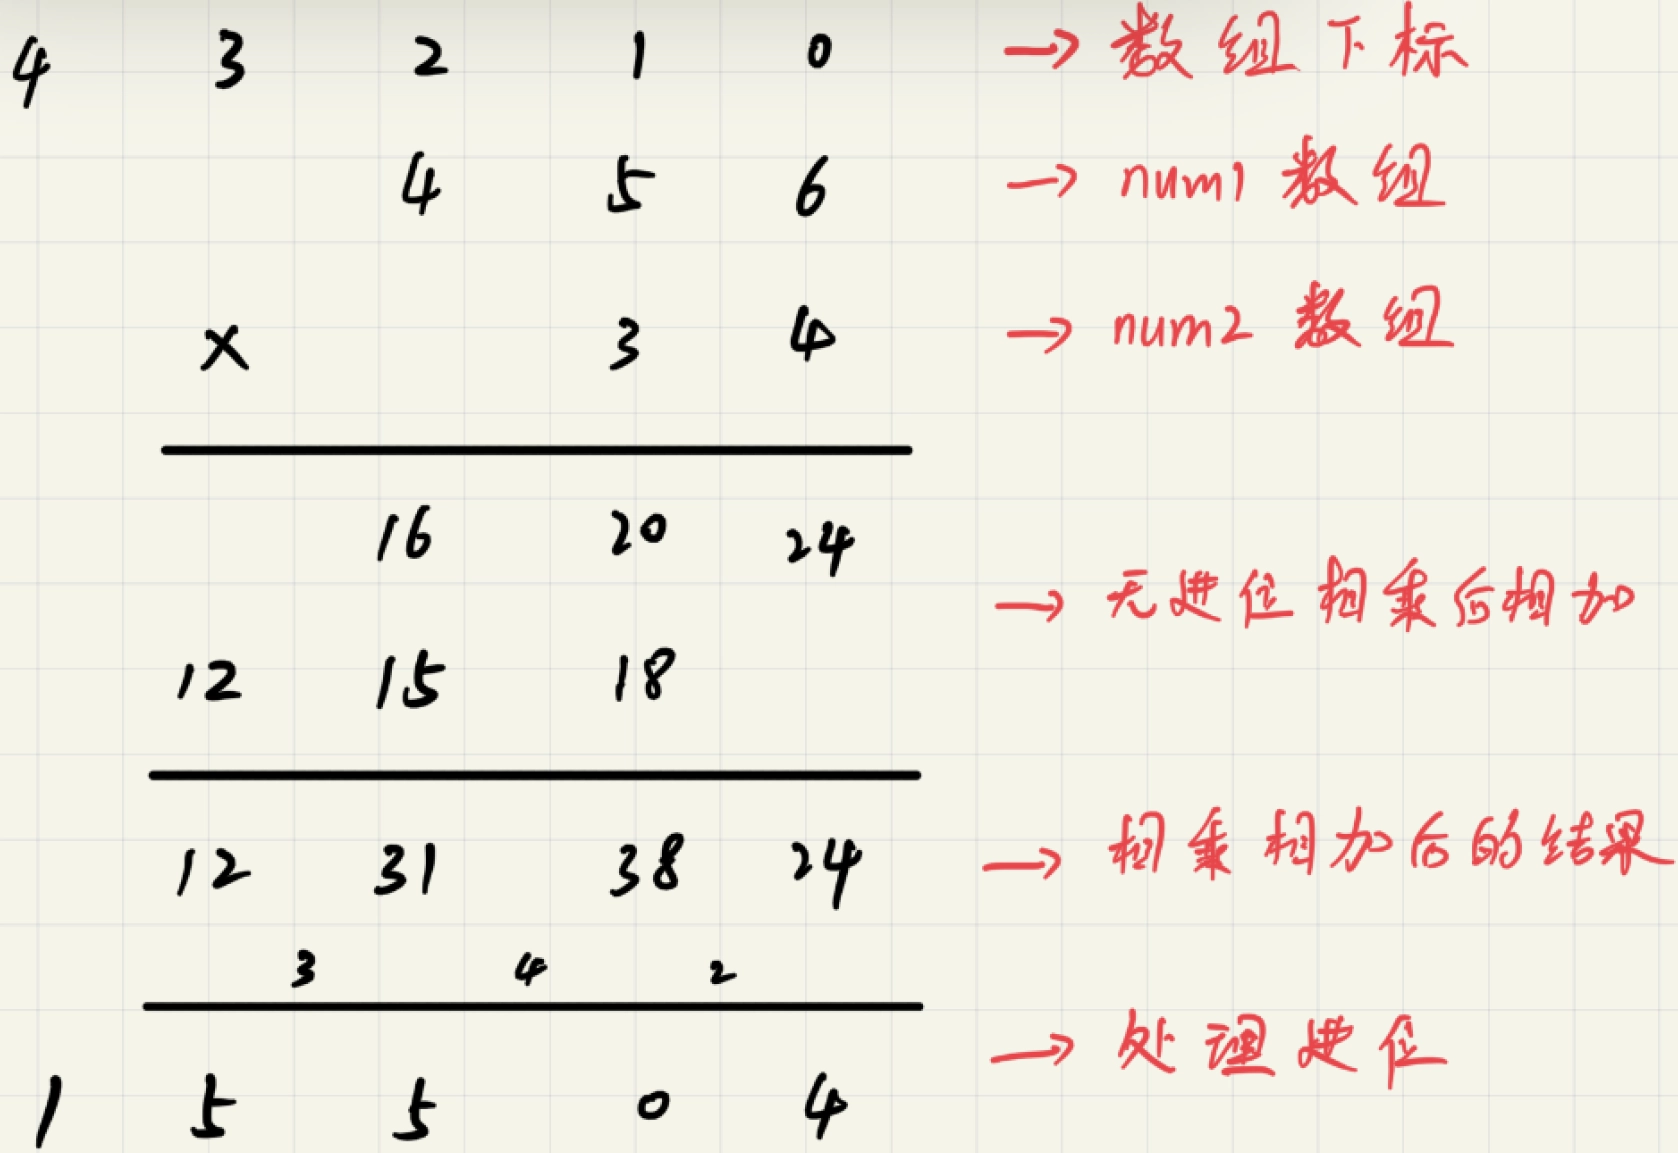 4 3 2 1 0 → 数组下标
4 5 6 → num1 数组
× 3 4 → num2 数组
16 20 24
→ 无进位相乘后相加
12 15 18
12 31 38 24 → 相乘相加后的结果
3 4 2
→ 处理进位
1 5 5 0 4